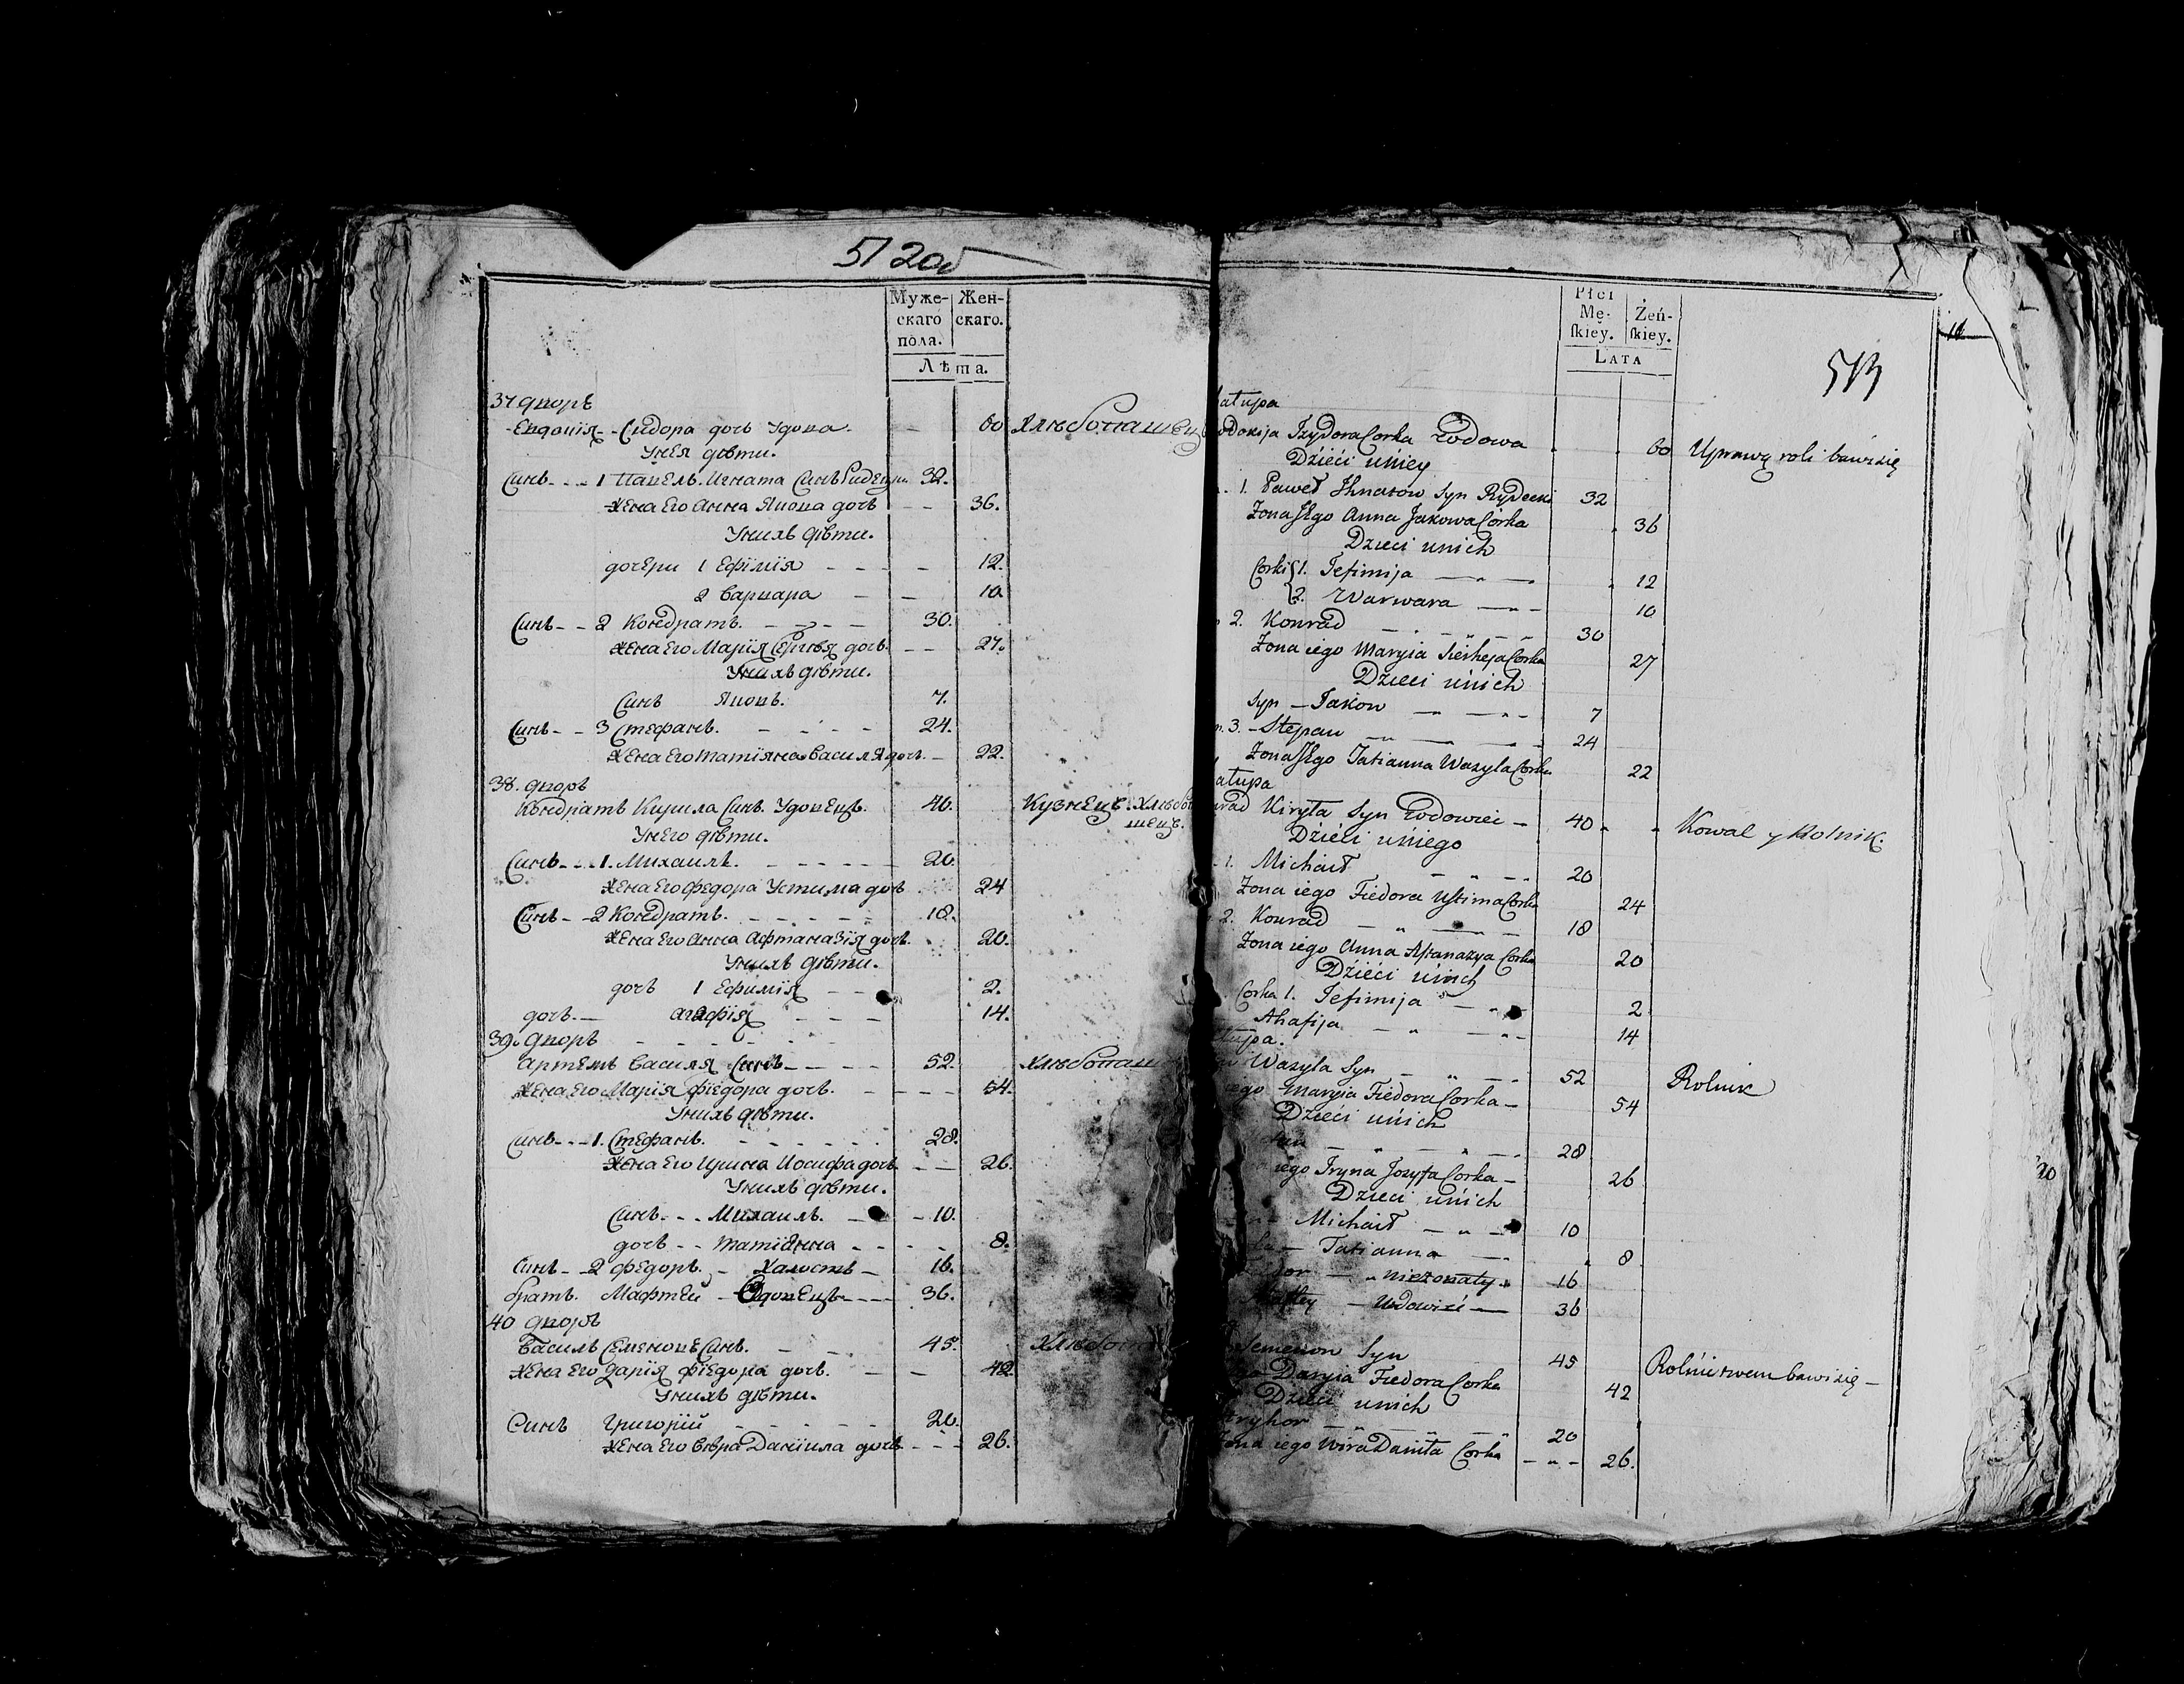 512 об
Муже- Жен-
скаго скаго.
пола.
Лѣта.
37 дворъ
Евдокія - Сидора дочь Удова. 60 Хлѣбопашец
Унея дѣти.
Синъ - - - 1 Павелъ. Игната Синъ 32.
жена его Анна Якова дочь - - 36.
Унихъ дѣти.
дочери 1 Ефімія - - - - 12.
2 Варвара - - 10
Синъ - - 2 Кондратъ. - - - - 30.
жена его Марія Сергѣя дочь. - - 27.
Унихъ дѣти.
Синъ Яковъ. 7.
Синъ - - 3 Стефанъ. - - - - 24.
жена его Татіяна Василя дочь. - 22.
38. дворъ
Кондратъ Кирила Синъ. Удовецъ. 40. Кузнецъ. Хлѣбопа
шецъ.
Унего дѣти.
Синъ - - - 1. Михаилъ. - - - - - 20.
жена его Федора Устима дочь 24
Синъ - - 2 Кондратъ. - - - - - 18.
жена его Анна Афтаназія дочь. 20.
Унихъ дѣти.
дочь 1 Ефимія - - 2.
дочь. — Агафія - - - 14.
39. дворъ - - - - - -
Артемъ Василя Синъ - - - - 52. Хлѣбопаш
жена его Марія Фіедора дочь. - - - - 54.
Унихъ дѣти.
Синъ - - - 1. Стефанъ. - - - - - - 28.
жена его Ирина Иосифа дочь - — 26.
Унихъ дѣти.
Синъ - - - Михаилъ. - - 10.
дочь - - Татіанна - - - - 8.
Синъ - - 2 Федоръ. - Халостъ - 16.
братъ. Мафтей - Удовецъ - - - - 36.
40 дворъ
Василь Семеновъ Синъ. - - - 45. Хлѣбопа
жена его Дарія Фіедора дочь. - - 42.
Унихъ дѣти.
Синъ Григорій - - - - - 20.
жена его Вѣра Даніила дочь - - - 26.
Płci
Mę- Żeń-
ſkiey. ſkiey.
LATA
513
atupa
dokija Izydora Corka Wdowa 60 Uprawą roli bawi się
Dzieci uniey
1. Paweł Ihnatow Syn 32
Zona Jego Anna Jakowa Corka 36
Dzieci unich
Corki 1. Jefimija — — 12
2. Warwara — - 10
2. Konrad - - - 30
Zona iego Maryia Corka 27
Dzieci unich
Syn — Jakow — - 7
3. - Stepan — — 24
Zona Jego Tatianna Wasyla Corka 22
atupa
rad Kiryła Syn Wdowiec - 40 Kowal y Rolnik.
Dzieci uniego
1. Michaił - - - 20
Zona iego Fiedora Ustima Corka 24
2. Konrad - - 18
Zona iego Anna Aftanazya Corka 20
Dzieci unich
Corka 1. Jefimija - 2
Ahafija - - 14
tupa.
Wasyla Syn - - 52 Rolnik
ego Maryia Fiedora Corka - 54
Dzieci unich
- - - 28
iego Iryna Jozyfa Corka - 26
Dzieci unich
Michaił - - 10
Tatianna — 8
— niezonaty. 16
— Wdowiec — 36
Semenow Syn 45 Rolnictwem bawi się —
Daryia Fiedora Corka 42
Dzieci unich
Hryhor - - - 20
Zona iego Wira Daniła Corka - - - 26.